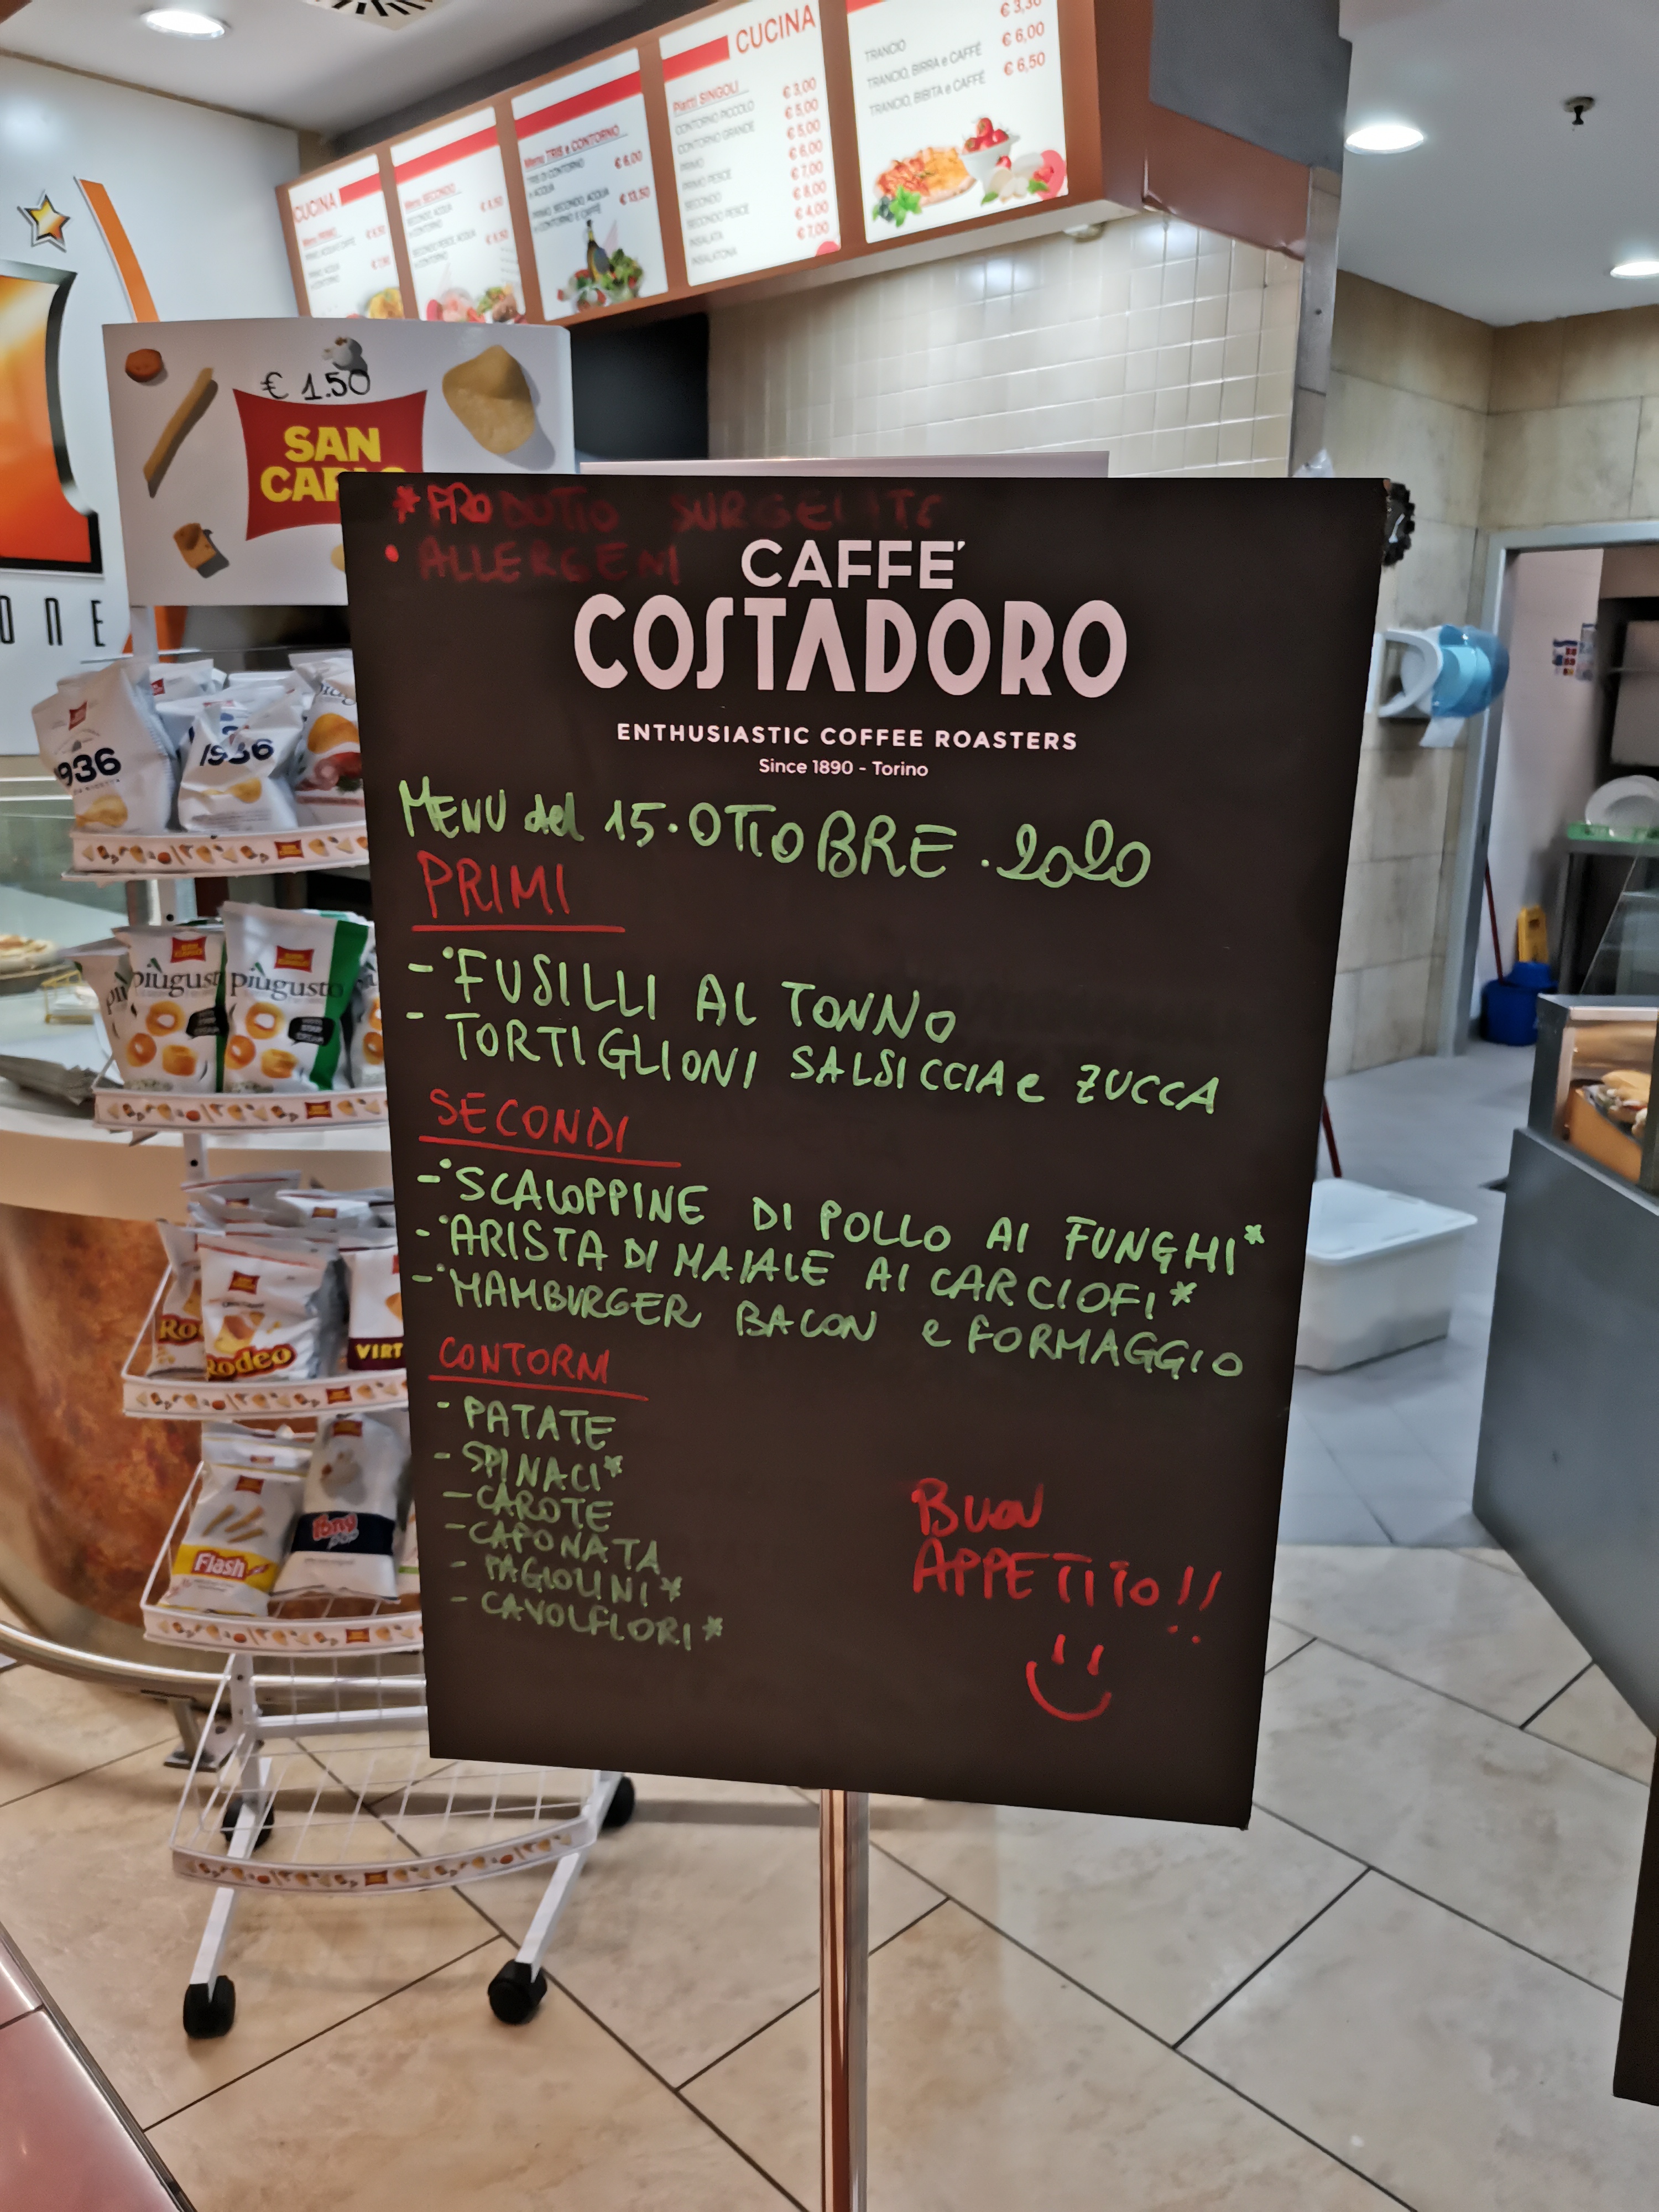 CUCINA
Piatti SINGOLI
CONTORNO PICCOLO € 3,00
CONTORNO GRANDE € 5,00
PRIMO € 5,00
PRIMO PESCE € 6,00
SECONDO € 7,00
SECONDO PESCE € 8,00
INSALATA € 4,00
INSALATONA € 7,00
TRANCIO € 3,30
TRANCIO, BIRRA e CAFFÈ € 6,00
TRANCIO, BIBITA e CAFFÈ € 6,50
CUCINA
Menu SECONDO
Menu TRIS e CONTORNO
€ 6,00
€ 13,50
€ 1.50
SAN
*PRODOTTO SURGELATO
• ALLERGENI
CAFFE'
COSTADORO
ENTHUSIASTIC COFFEE ROASTERS
Since 1890 - Torino
MENU del 15.OTTOBRE.2020
PRIMI
-•FUSILLI AL TONNO
- TORTIGLIONI SALSICCIA e ZUCCA
SECONDI
-•SCALOPPINE DI POLLO AI FUNGHI*
-•ARISTA DI MAIALE AI CARCIOFI*
-•HAMBURGER BACON e FORMAGGIO
CONTORNI
- PATATE
- SPINACI*
- CAROTE
- CAPONATA
- FAGIOLINI*
- CAVOLFIORI*
BUON
APPETITO!!
936
1936
piùgusto
piùgusto
Rodeo
VIRT
Flash
Tony